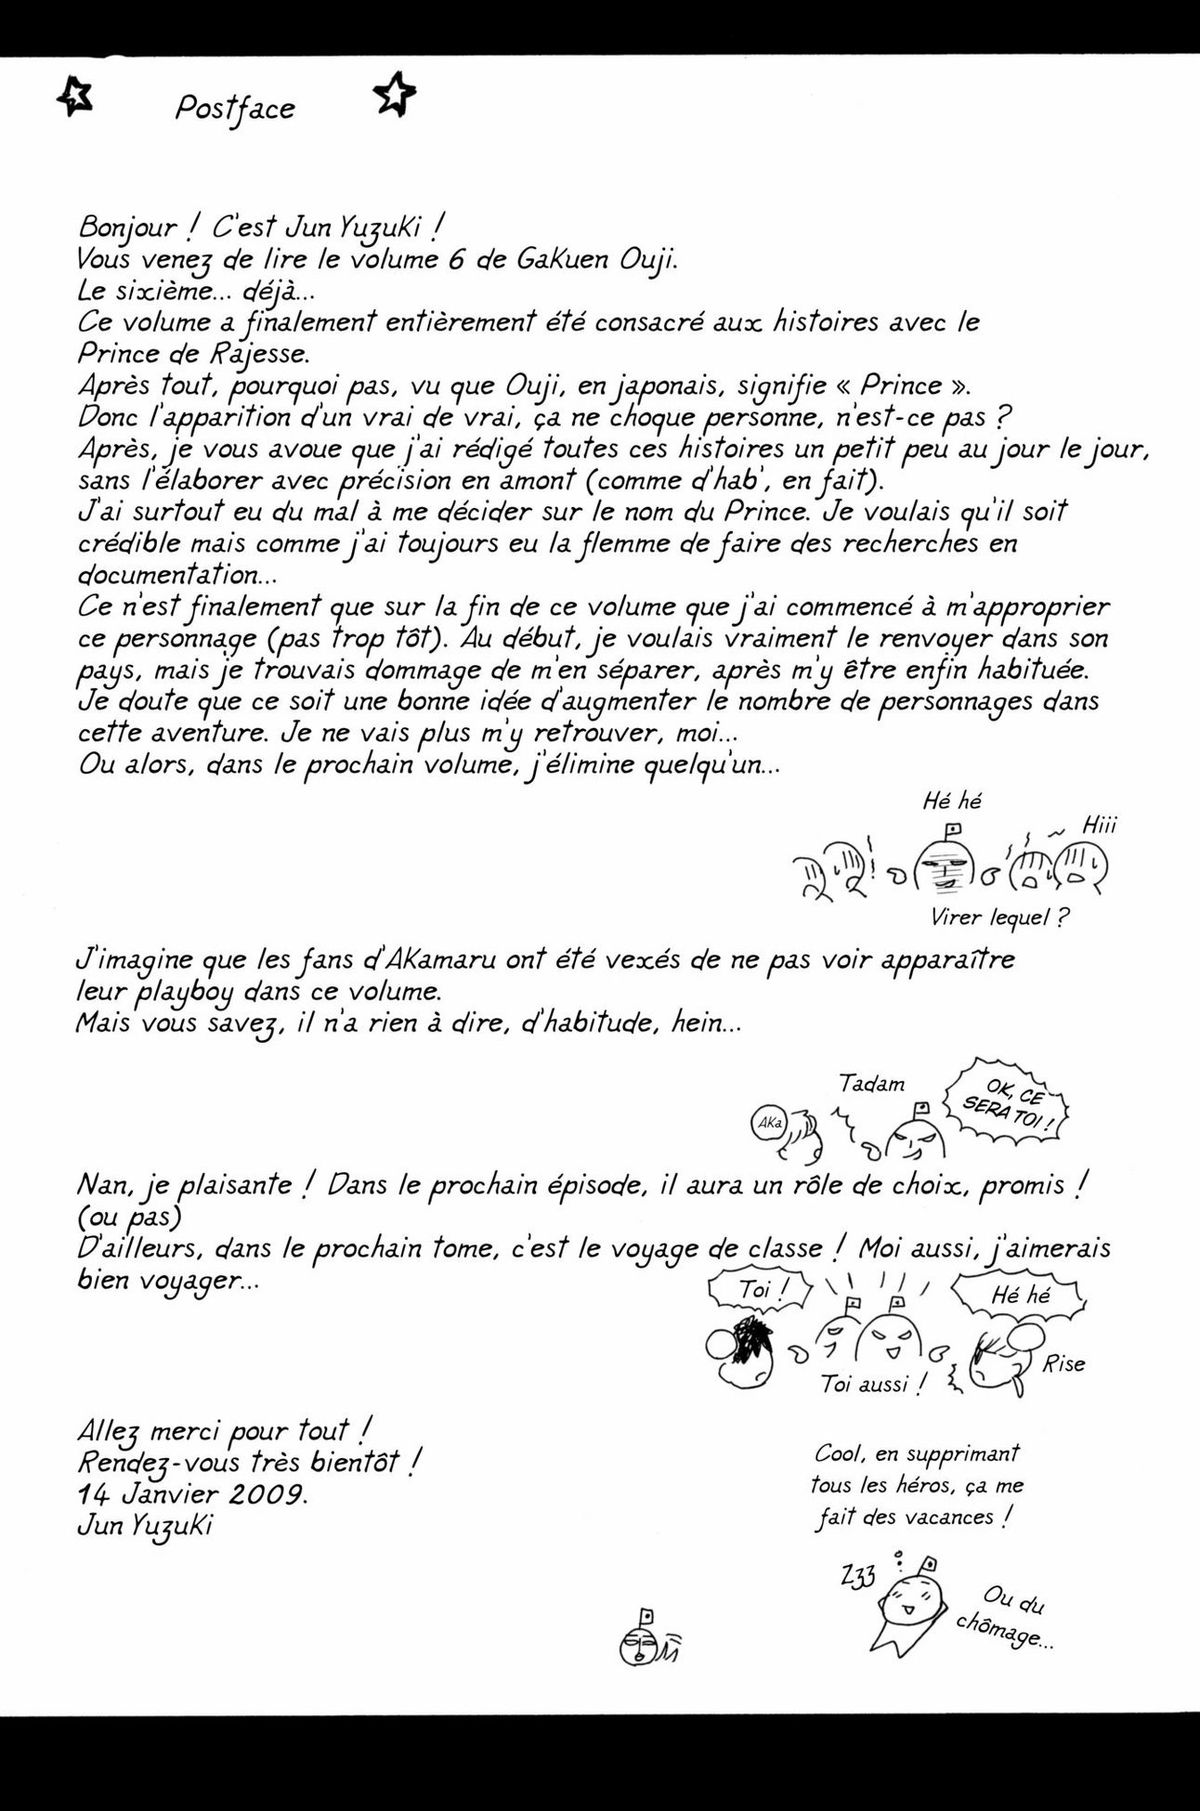 Postface
Bonjour ! C'est Jun Yuzuki !
Vous venez de lire le volume 6 de Gakuen Ouji.
Le sixième... déjà...
Ce volume a finalement entièrement été consacré aux histoires avec le
Prince de Rajesse.
Après tout, pourquoi pas, vu que Ouji, en japonais, signifie « Prince ».
Donc l'apparition d'un vrai de vrai, ça ne choque personne, n'est-ce pas ?
Après, je vous avoue que j'ai rédigé toutes ces histoires un petit peu au jour le jour,
sans l'élaborer avec précision en amont (comme d'hab', en fait).
J'ai surtout eu du mal à me décider sur le nom du Prince. Je voulais qu'il soit
crédible mais comme j'ai toujours eu la flemme de faire des recherches en
documentation...
Ce n'est finalement que sur la fin de ce volume que j'ai commencé à m'approprier
ce personnage (pas trop tôt). Au début, je voulais vraiment le renvoyer dans son
pays, mais je trouvais dommage de m'en séparer, après m'y être enfin habituée.
Je doute que ce soit une bonne idée d'augmenter le nombre de personnages dans
cette aventure. Je ne vais plus m'y retrouver, moi...
Ou alors, dans le prochain volume, j'élimine quelqu'un...
Hé hé
Hiii
Virer lequel ?
J'imagine que les fans d'Akamaru ont été vexés de ne pas voir apparaître
leur playboy dans ce volume.
Mais vous savez, il n'a rien à dire, d'habitude, hein...
Tadam
OK, CE
SERA TOI !
Aka
Nan, je plaisante ! Dans le prochain épisode, il aura un rôle de choix, promis !
(ou pas)
D'ailleurs, dans le prochain tome, c'est le voyage de classe ! Moi aussi, j'aimerais
bien voyager...
Toi !
Hé hé
Rise
Toi aussi !
Allez merci pour tout !
Rendez-vous très bientôt !
14 Janvier 2009.
Jun Yuzuki
Cool, en supprimant
tous les héros, ça me
fait des vacances !
Zzz
Ou du
chômage...